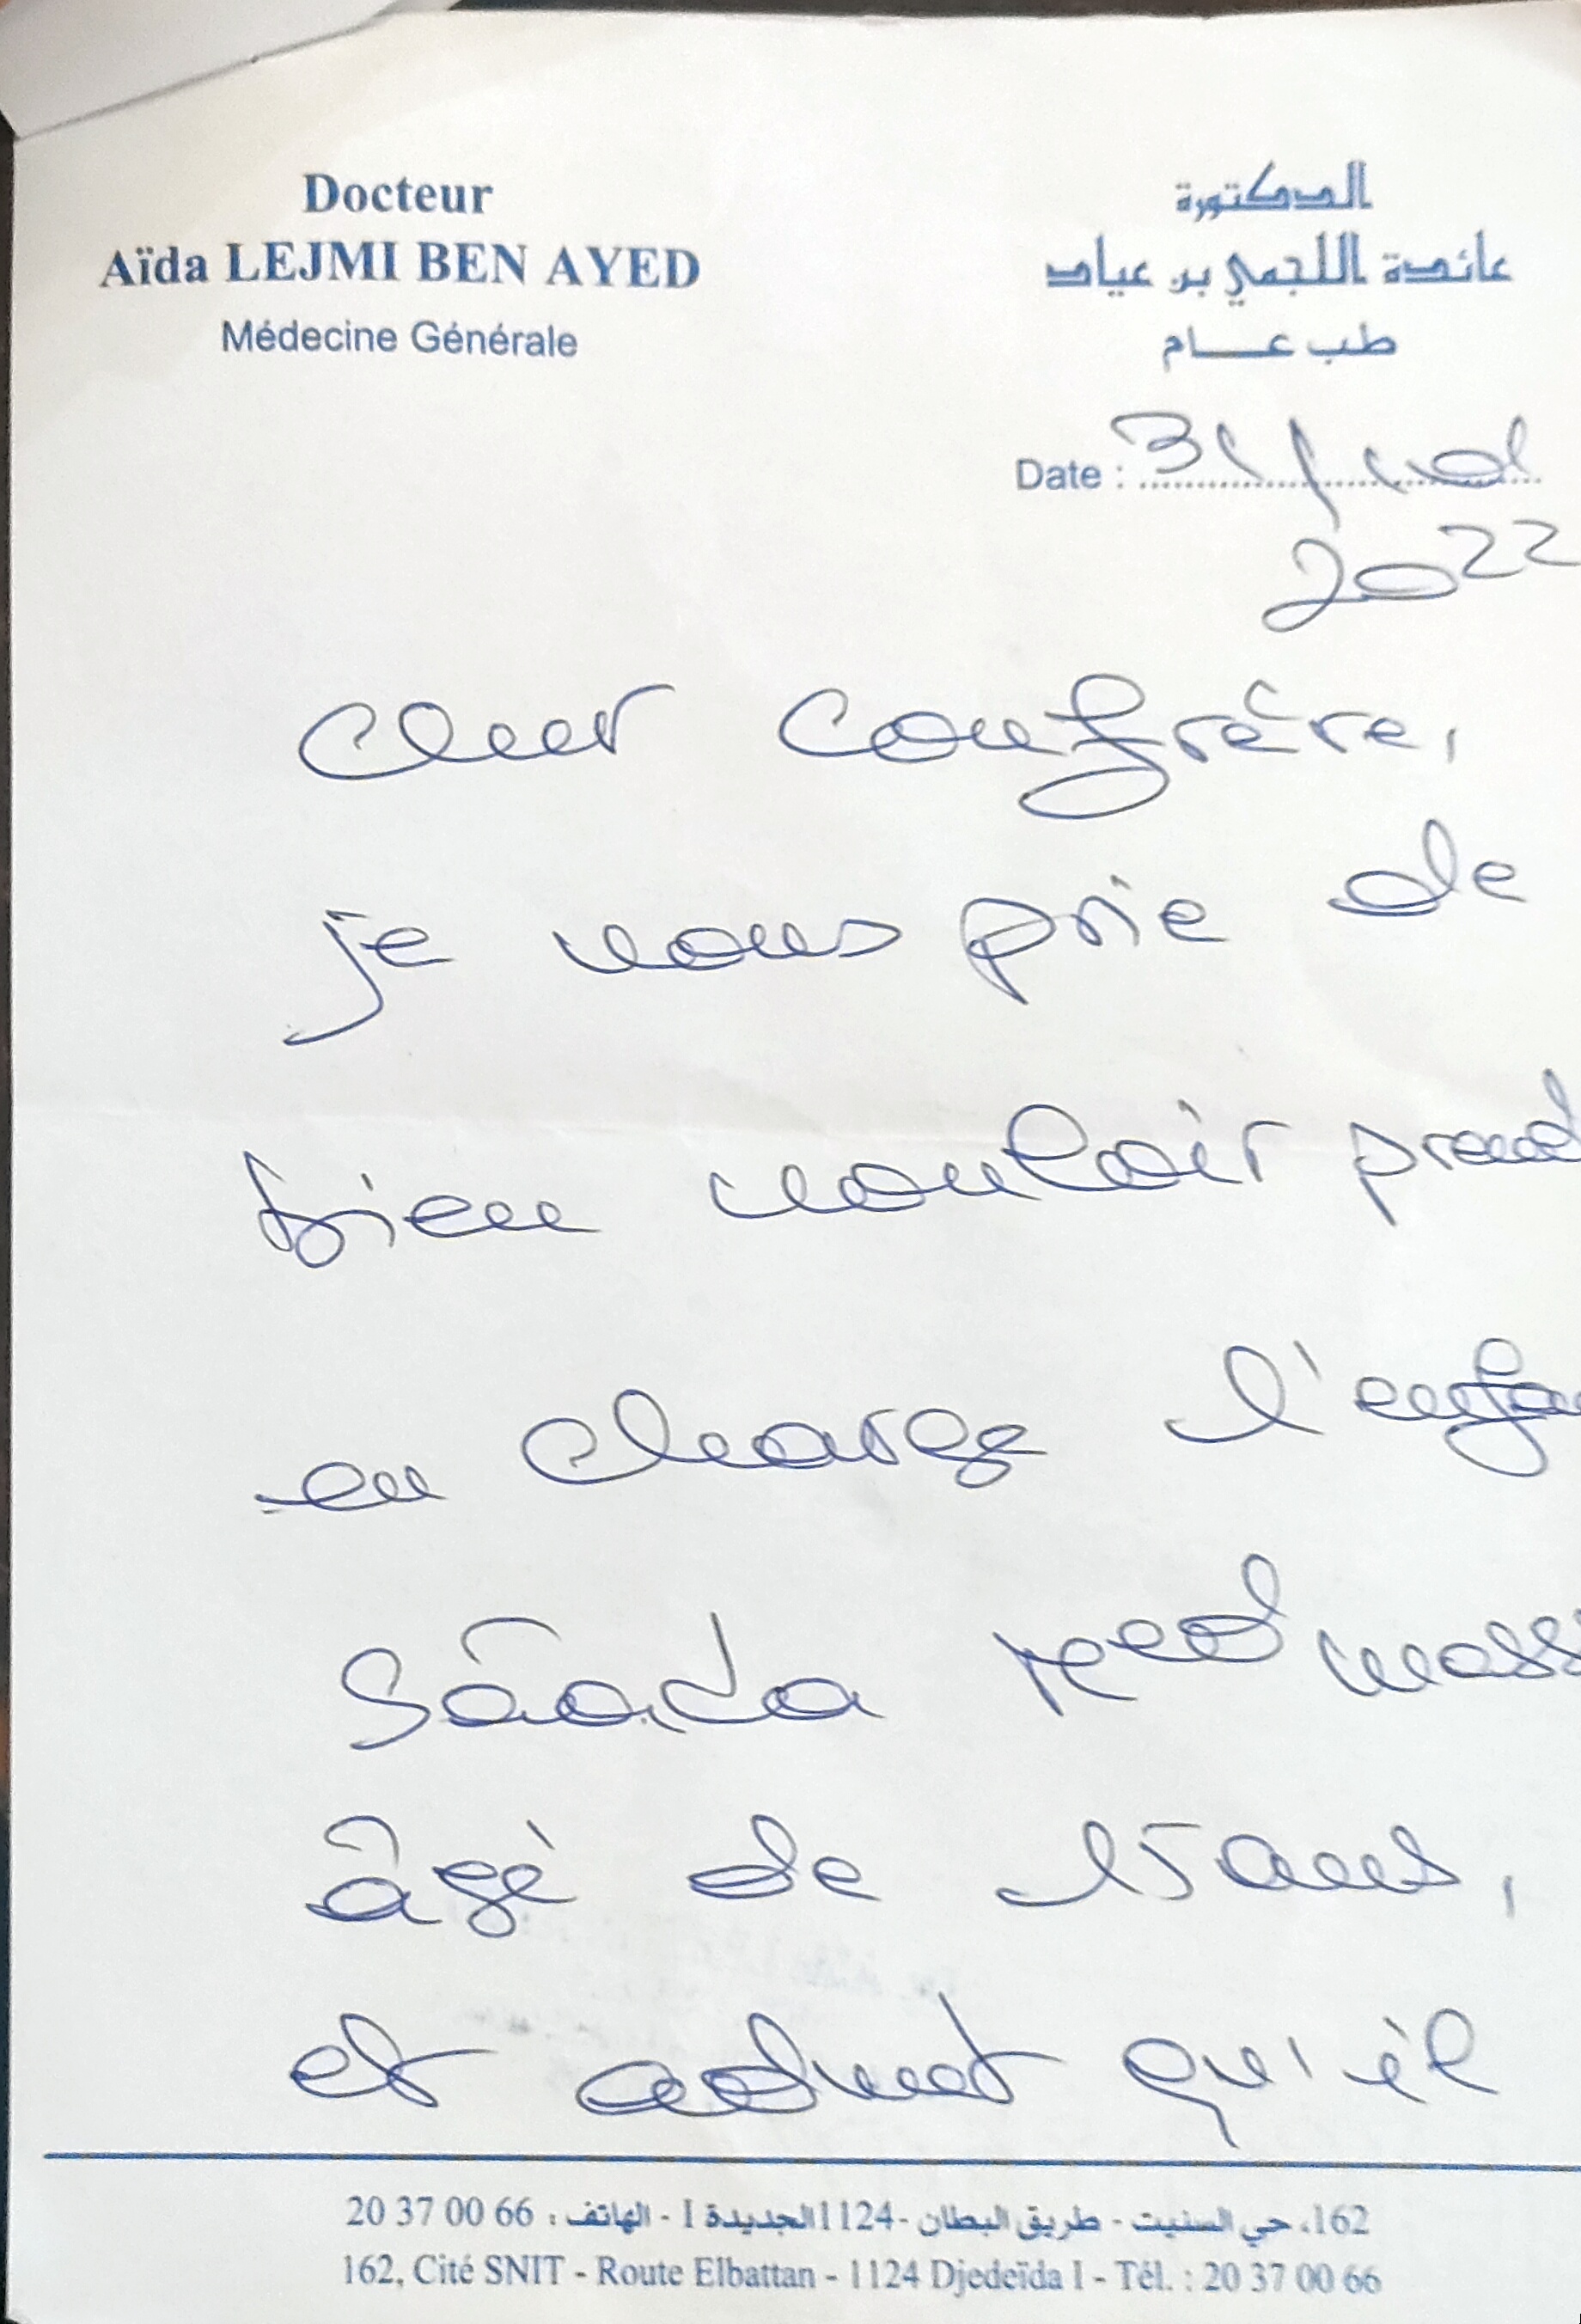 Docteur
Aïda LEJMI BEN AYED
Médecine Générale
الدكتورة
عائدة اللجمي بن عياد
طب عـــام
Date : 31/
2022
Cher Confrère,
je vous prie de
bien vouloir prend
en charge l'enfa
Sâada Med wass
âgé de 15 ans,
et admet qu'il
162، حي السنيت - طريق البطان -1124 الجديدة I - الهاتف : 66 00 37 20
162, Cité SNIT - Route Elbattan - 1124 Djedeïda I - Tél. : 20 37 00 66